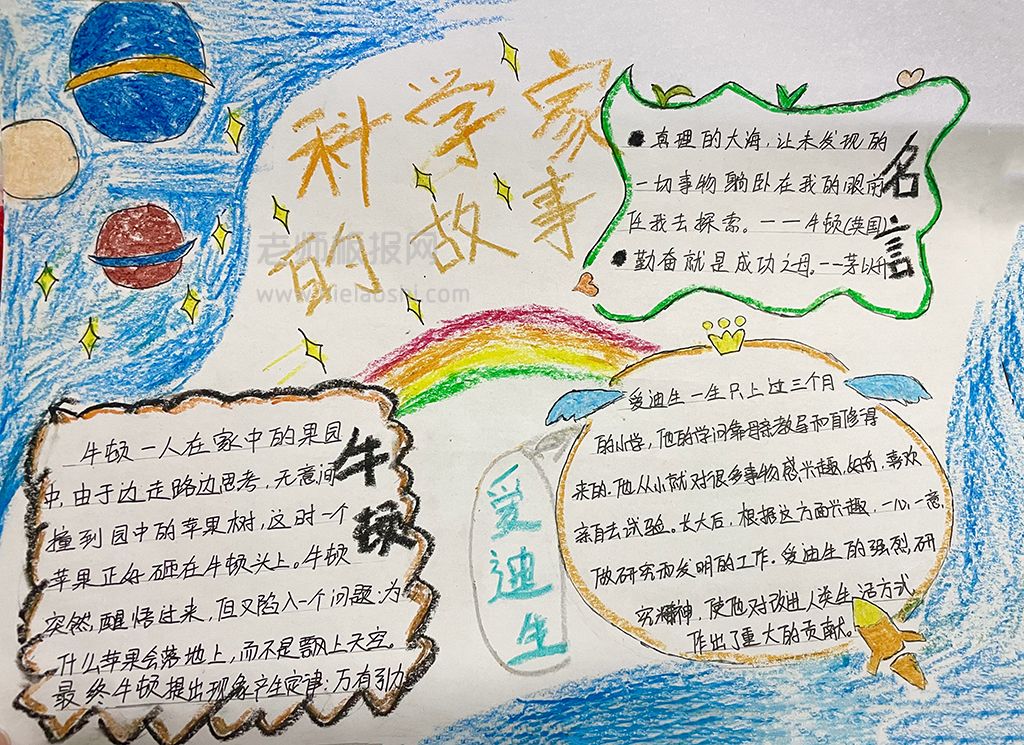 科学家
的故事
老师板报网
名言
真理的大海,让未发现的
一切事物躺卧在我的眼前
任我去探索。——牛顿(英国)
勤奋就是成功之母。——茅以升
牛顿
牛顿一人在家中的果园
中,由于边走路边思考,无意间
撞到园中的苹果树,这时一个
苹果正好砸在牛顿头上。牛顿
突然,醒悟过来,但又陷入一个问题:为
什么苹果会落地上,而不是飘上天空。
最终牛顿提出现象产生定律:万有引力
爱迪生
爱迪生一生只上过三个月
的小学,他的学问靠母亲教导和自修得
来的.他从小就对很多事物感兴趣,好奇,喜欢
亲自去试验。长大后,根据这方面兴趣,一心一意,
做研究和发明的工作.爱迪生的强烈研
究精神,使他对改进人类生活方式
作出了重大的贡献。